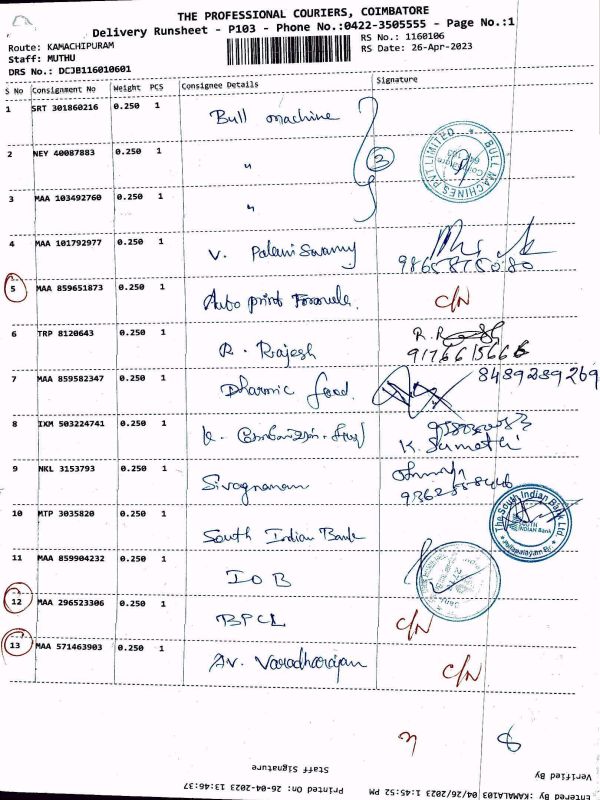 THE PROFESSIONAL COURIERS, COIMBATORE
Delivery Runsheet - P103 - Phone No.:0422-3505555 - Page No.:1
Route: KAMACHIPURAM
RS No.: 1160106
Staff: MUTHU
RS Date: 26-Apr-2023
DRS No.: DCJB116010601
S No Consignment No Weight PCS Consignee Details Signature
1 SRT 301860216 0.250 1 Bull machine
2 NEY 40087883 0.250 1 " 3
BULL MACHINES PVT LIMITED
3 MAA 103492760 0.250 1 "
4 MAA 101792977 0.250 1 V. Palani Swamy
9865875080
5 MAA 859651873 0.250 1 Auto print Formula. C/N
6 TRP 8120643 0.250 1 R. Rajesh R.R
9176615666
7 MAA 859582347 0.250 1 Dharmic food. 8489289269
8 IXM 503224741 0.250 1 K.
K. Sumathi
9 NKL 3153793 0.250 1 Sivagnanam
10 MTP 3035820 0.250 1 South Indian Bank
The South Indian Bank Ltd.
SOUTH INDIAN Bank
11 MAA 859904232 0.250 1 IOB
12 MAA 296523306 0.250 1 BPCL C/N
13 MAA 571463903 0.250 1 AV. Varadharajan C/N
8
Staff Signature
Verified By
Printed On: 26-04-2023 13:46:37
Entered By :KAMALA103 04/26/2023 1:45:52 PM